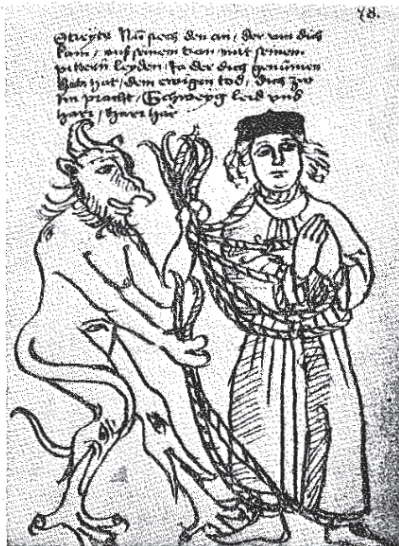 48.
Streyte Nů sich den an / der um dich
kam / auß seinem tron mit seinem
pittern leyden / Ja der dich genůmen
hat / dem ewigen tod / dich zw
Im pracht / Schweyg leid und
hart / hart har